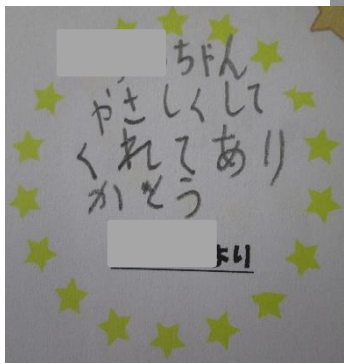 ちゃん
やさしくして
くれてあり
がとう
より